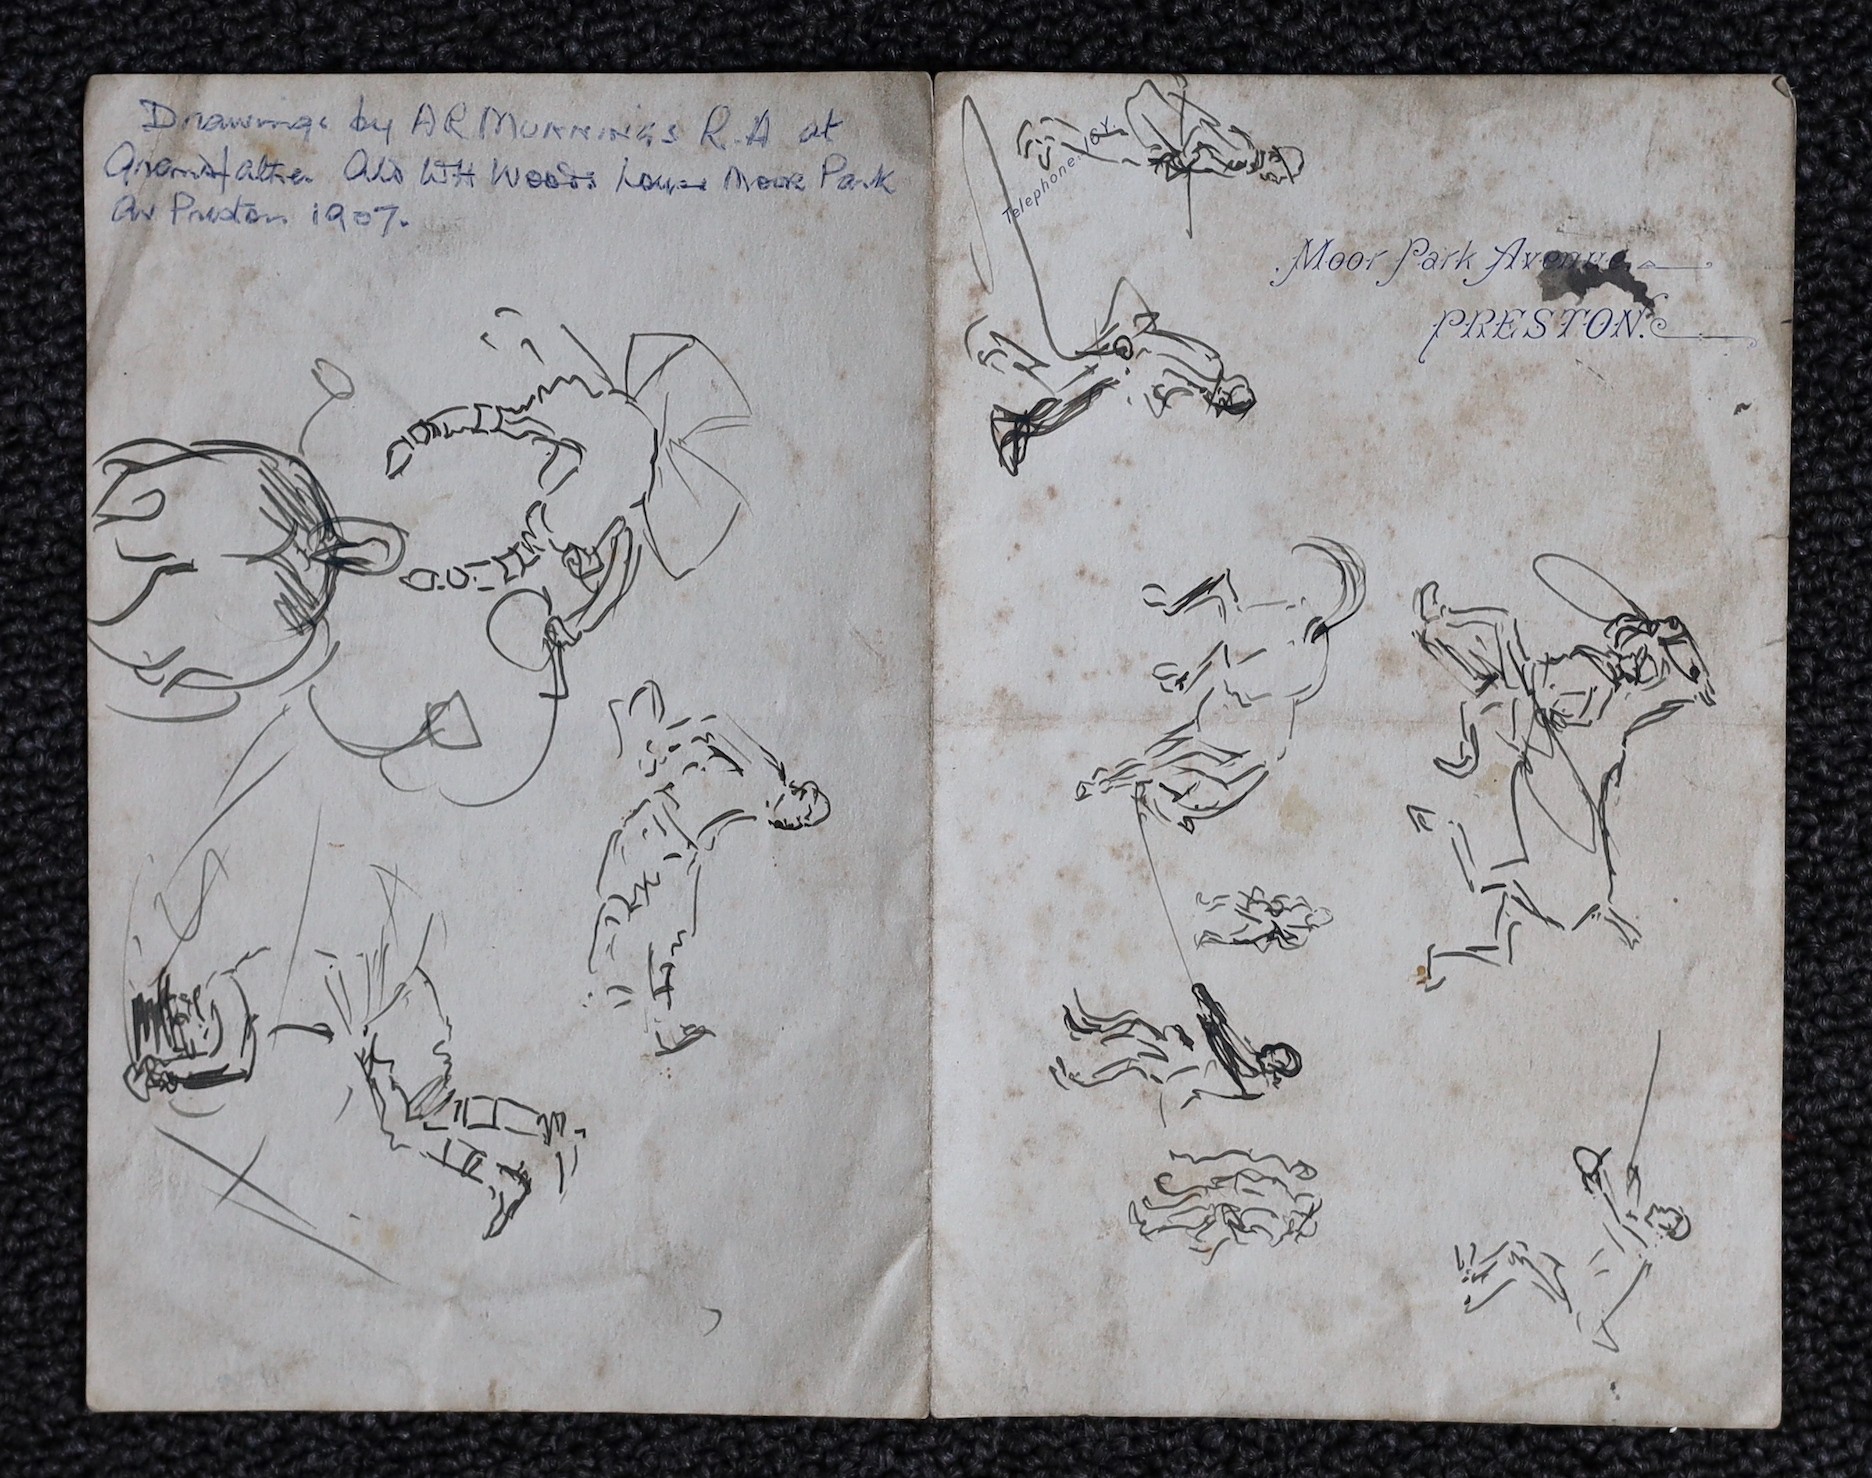 Drawings by AR MUNNINGS R.A at
Grandfather Ald WH Woods house Moor Park
Av Preston 1907.
Telephone:
Moor Park Avenue
PRESTON.